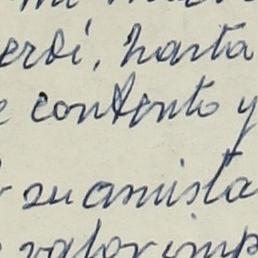 erdí, hasta
e contento y
su amista
valor imp